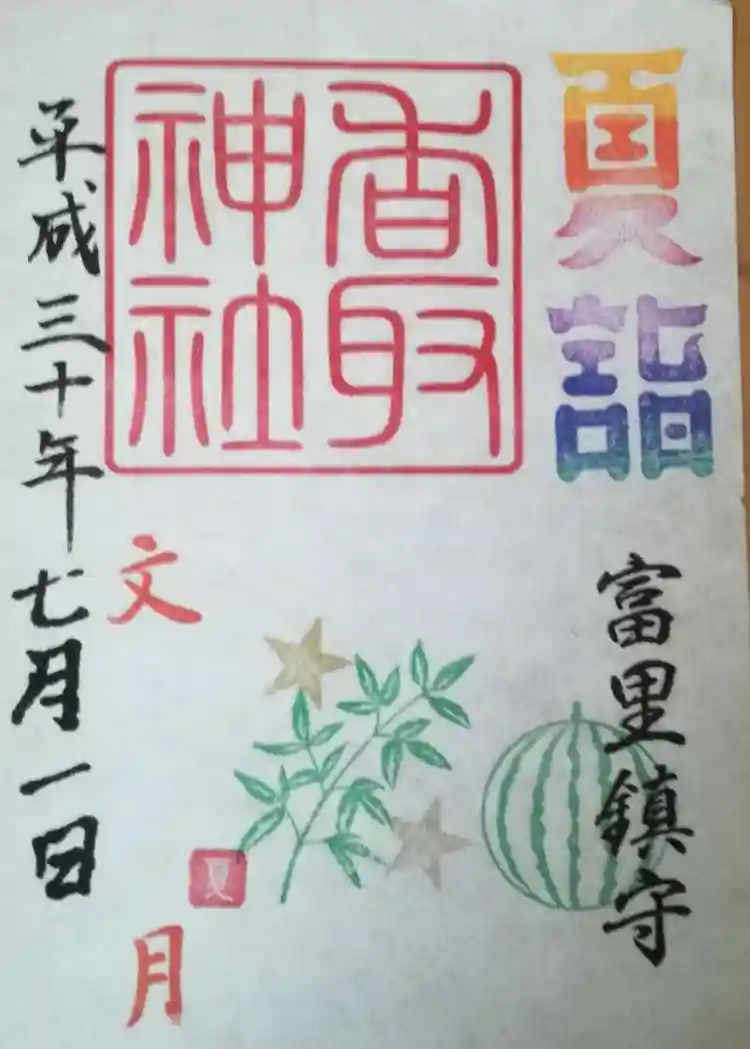 夏詣
富里鎮守
香取
神社
文月
夏
平成三十年七月一日